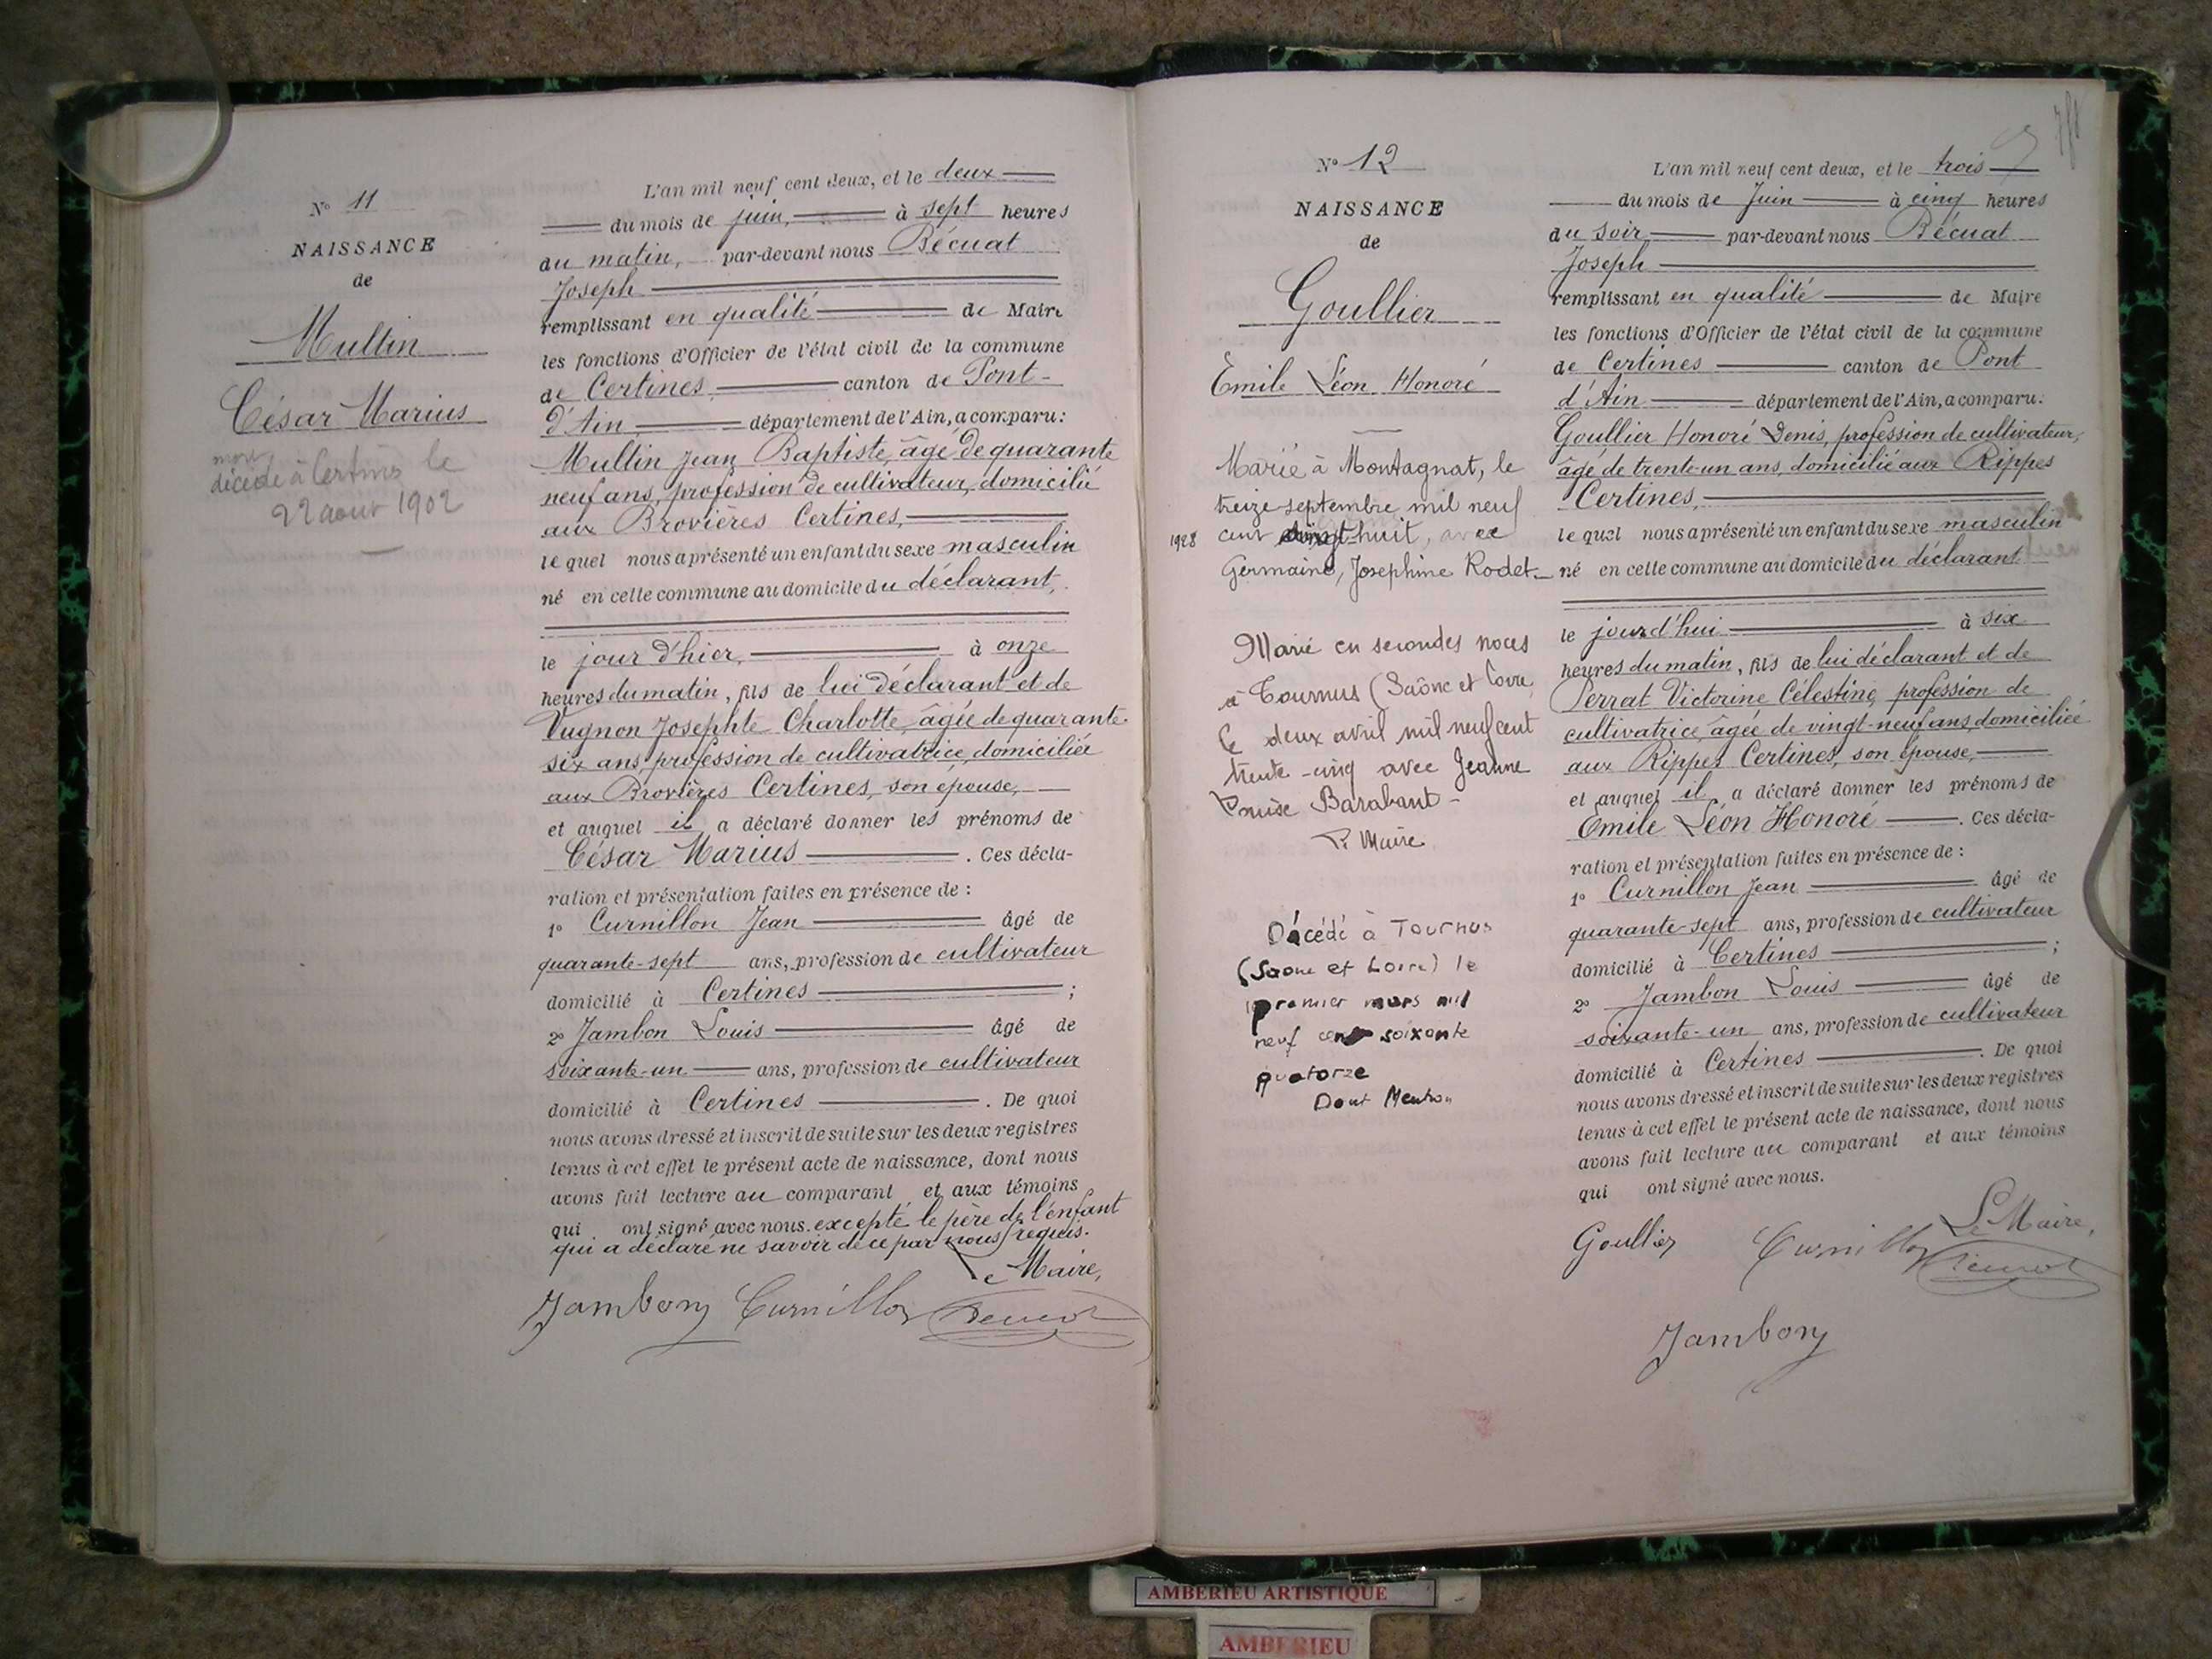 N° 11
NAISSANCE
de
Mullin
César Marius
mort
décédé à Certines le
22 aout 1902
L'an mil neuf cent deux, et le deux
du mois de juin, à sept heures
du matin, par-devant nous Bécuat
Joseph
remplissant en qualité de Maire
les fonctions d'Officier de l'état civil de la commune
de Certines canton de Pont-
d'Ain département de l'Ain, a comparu:
Mullin Jean Baptiste, âgé de quarante
neuf ans, profession de cultivateur, domicilié
aux Brovières Certines,
lequel nous a présenté un enfant du sexe masculin
né en cette commune au domicile du déclarant,
le jour d'hier, à onze
heures du matin, fils de lui déclarant et de
Vugnon Josephte Charlotte, âgée de quarante
six ans, profession de cultivatrice, domiciliée
aux Brovières Certines, son épouse,
et auquel il a déclaré donner les prénoms de
César Marius. Ces décla-
ration et présentation faites en présence de :
1° Curnillon Jean âgé de
quarante-sept ans, profession de cultivateur
domicilié à Certines ;
2° Jambon Louis âgé de
soixante-un ans, profession de cultivateur
domicilié à Certines. De quoi
nous avons dressé et inscrit de suite sur les deux registres
tenus à cet effet le présent acte de naissance, dont nous
avons fait lecture au comparant et aux témoins
qui ont signé avec nous. excepté le père de l'enfant
qui a déclaré ne savoir de ce par nous requis.
Le Maire,
Jambon Curnillon Bécuat
N° 12
NAISSANCE
de
Goullier
Emile Léon Honoré
Marié à Montagnat, le
treize septembre mil neuf
1928 cent vingt huit, avec
Germaine, Josephine Rodet
Marié en secondes noces
à Tournus (Saône et Loire
le deux avril mil neuf cent
trente-cinq avec Jeanne
Louise Barabant -
P. Maire
Décédé à Tournus
(Saone et Loire) le
premier mars mil
neuf cent soixante
quatorze
Dont Mention
L'an mil neuf cent deux, et le trois
du mois de Juin à cinq heures
du soir par-devant nous Bécuat
Joseph
remplissant en qualité de Maire
les fonctions d'Officier de l'état civil de la commune
de Certines canton de Pont
d'Ain département de l'Ain, a comparu:
Goullier Honoré Denis, profession de cultivateur,
âgé de trente-un ans, domicilié aux Rippes
Certines,
lequel nous a présenté un enfant du sexe masculin
né en cette commune au domicile du déclarant
le jourd'hui à six
heures du matin, fils de lui déclarant et de
Perrat Victorine Célestine, profession de
cultivatrice, âgée de vingt-neuf ans, domiciliée
aux Rippes Certines, son épouse,
et auquel il a déclaré donner les prénoms de
Emile Léon Honoré. Ces décla-
ration et présentation faites en présence de :
1° Curnillon Jean âgé de
quarante-sept ans, profession de cultivateur
domicilié à Certines ;
2° Jambon Louis âgé de
soixante-un ans, profession de cultivateur
domicilié à Certines. De quoi
nous avons dressé et inscrit de suite sur les deux registres
tenus à cet effet le présent acte de naissance, dont nous
avons fait lecture au comparant et aux témoins
qui ont signé avec nous.
Le Maire,
Goullier Curnillon Bécuat
Jambon
AMBERIEU ARTISTIQUE
AMBERIEU